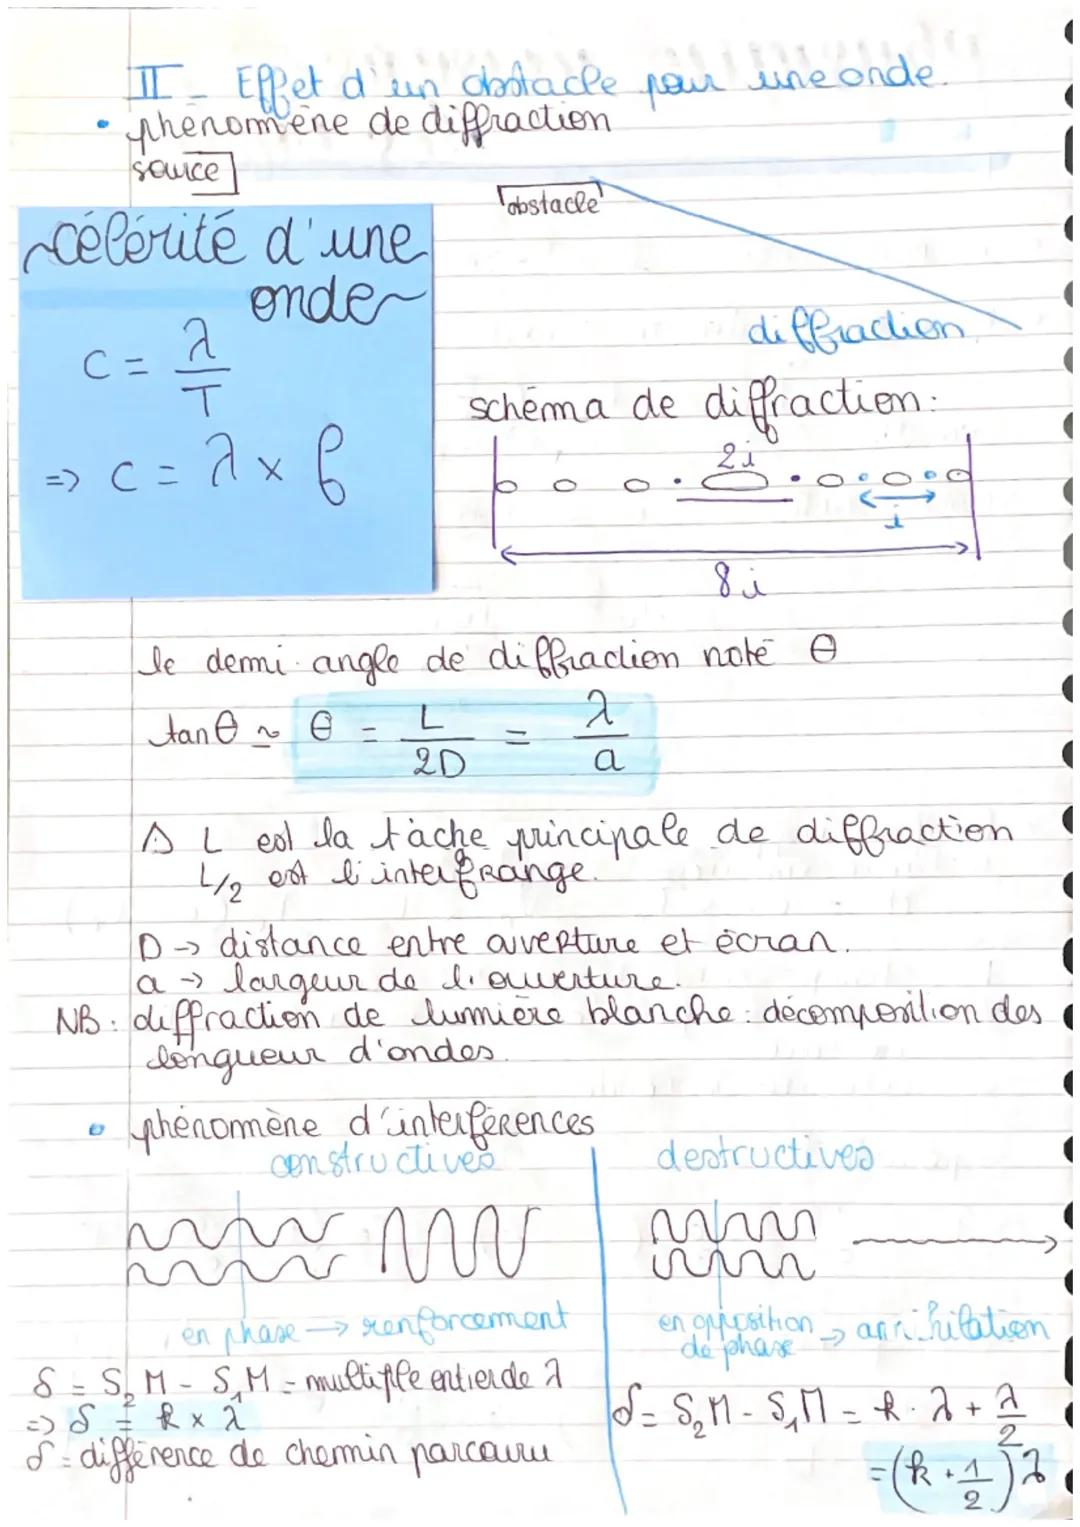 II - Effet d'un obstacle pour une onde.
• phénomène de diffraction
source
obstacle
~célérité d'une
onde~
C = λ/T
=> C = λ × f
diffraction
schéma de diffraction:
2i
i
8i
le demi-angle de diffraction noté θ
tanθ ≃ θ = L/2D = λ/a
⚠ L est la tâche principale de diffraction
L/2 est l'interfrange.
D -> distance entre ouverture et écran.
a -> largeur de l'ouverture.
NB: diffraction de lumière blanche: décomposition des
longueur d'ondes.
• phénomène d'interférences
constructives
destructives
en phase -> renforcement
en opposition
de phase -> annihilation
δ = S₂M - S₁M = multiple entier de λ
=> δ = k × λ
δ = différence de chemin parcouru
δ = S₂M - S₁M = k·λ + λ/2
= (k + 1/2)λ